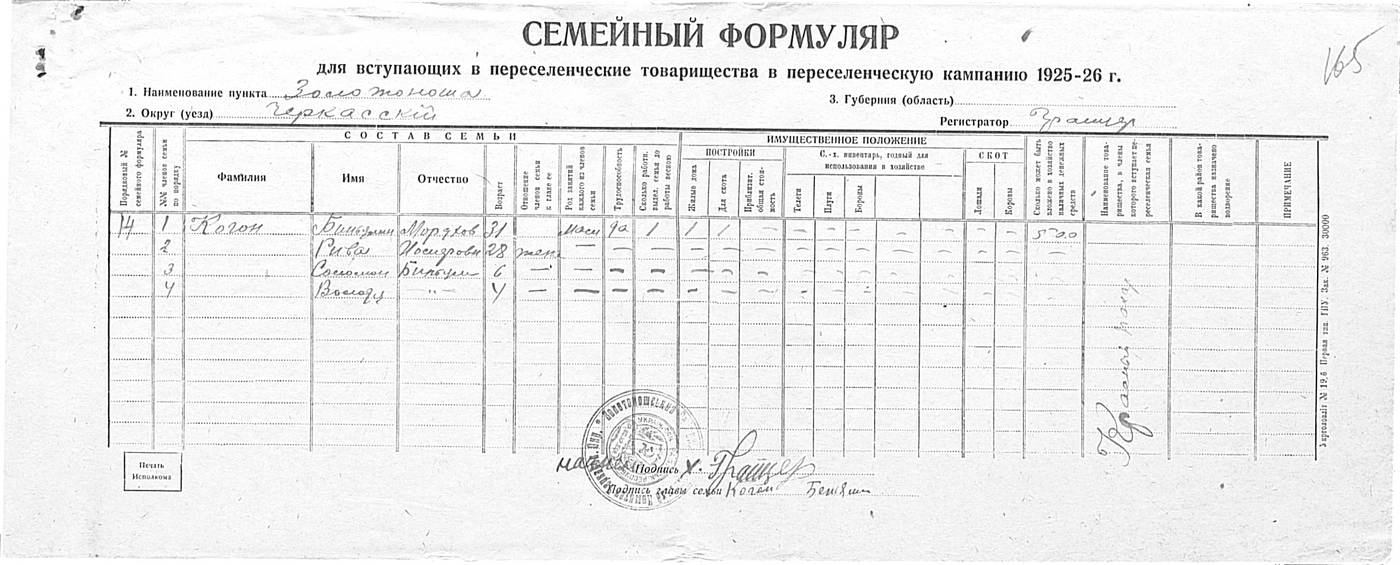 165
СЕМЕЙНЫЙ ФОРМУЛЯР
для вступающих в переселенческие товарищества в переселенческую кампанию 1925-26 г.
1. Наименование пункта Золотоноша
3. Губерния (область)
2. Округ (уезд) Черкасскій
Регистратор
СОСТАВ СЕМЬИ
ИМУЩЕСТВЕННОЕ ПОЛОЖЕНИЕ
ПОСТРОЙКИ
С.-х. инвентарь, годный для использования в хозяйстве
СКОТ
Порядковый № семейного формуляра
№№ членов семьи по порядку
Фамилия
Имя
Отчество
Возраст
Отношение членов семьи к главе ее
Род занятий каждого из членов семьи
Трудоспособность
Сколько работн. выдел. семья до работы весною
Жилые дома
Для скота
Приблизит. общая стоимость
Телеги
Плуги
Бороны
Лошади
Коровы
Сколько может быть вложено в хозяйство наличных денежных средств
Наименование товарищества, в члены которого вступает переселенческая семья
В какой район товарищества назначено водворение
ПРИМЕЧАНИЕ
14 1 Когон Мордхов 31 да 1 1 1 — 500
2 Рива 28 жена — — — —
3 Соломон 6 — — — —
4 —"— 4 — — — —
Печать
Исполкома
Подпись
Подпись главы семьи Когон
Укрголовліт № 19,6 Первая тип. ГПУ. Зак. № 963. 30000